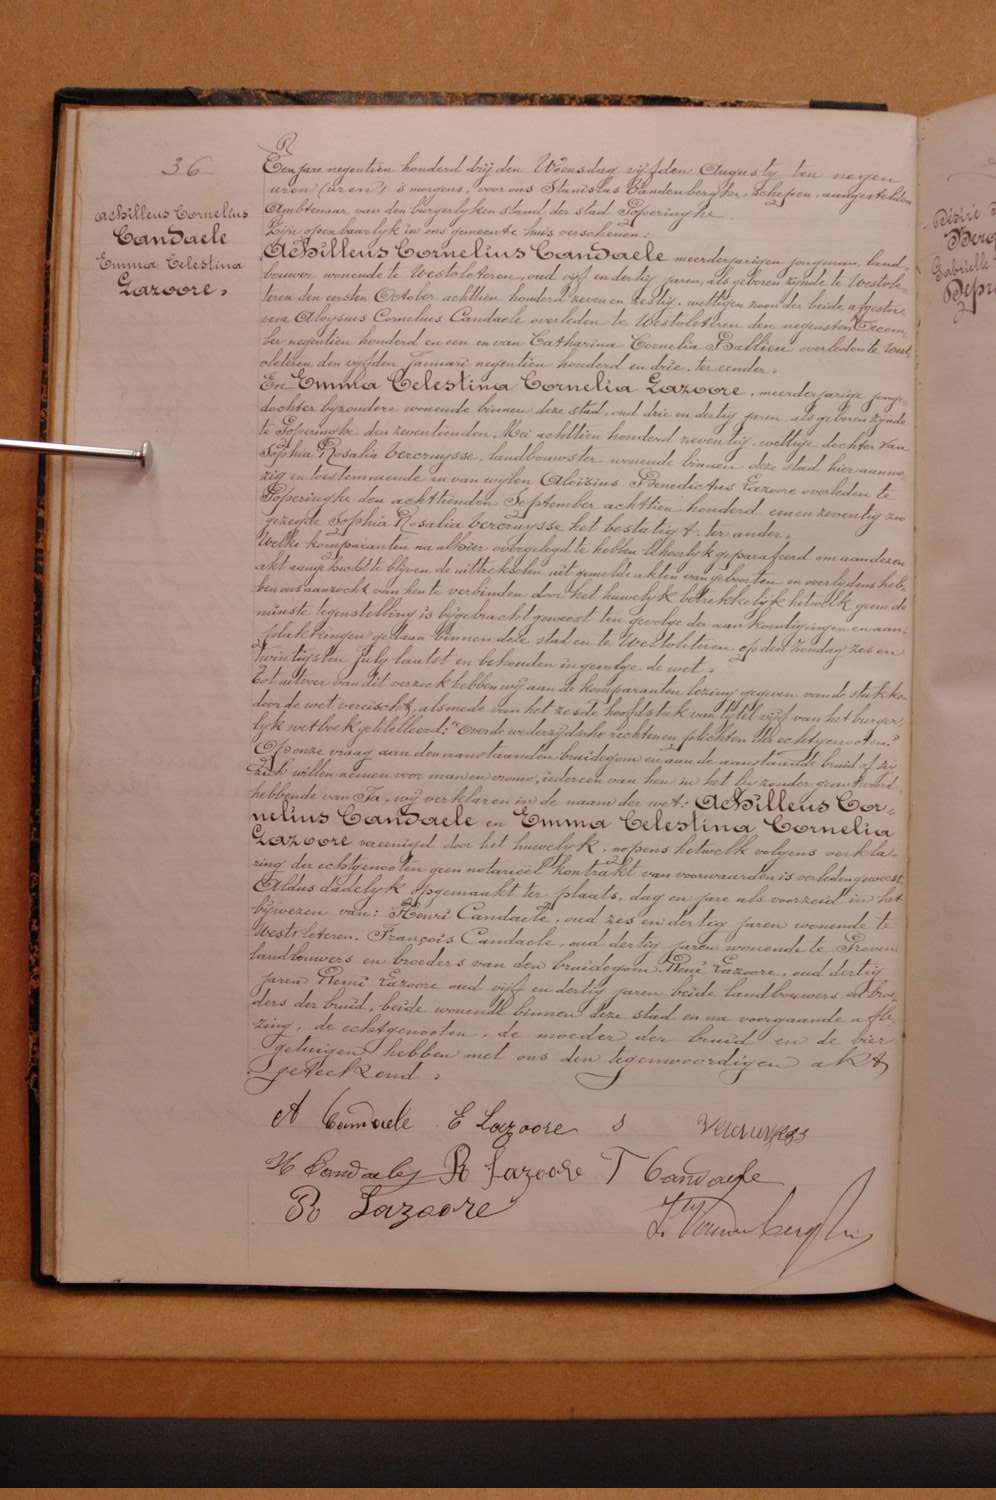 36
Achilleus Cornelius
Candaele
Emma Celestina
Lazoore.
Een jare negentien honderd drij den Woensdag vijfden Augusty ten negen
uren (uren) s morgens, voor ons Stanislas Vandenberghe, schepen aangestelden
Ambtenaar van den burgerlyken stand der stad Poperinghe
Zijn openbaarlyk in ons gemeente huis verschenen:
Achilleus Cornelius Candaele meerderjarigen jongman, land-
bouwer wonende te Westvleteren, oud vijf en dertig jaren, als geboren zijnde te Westvle-
teren den eersten October achttien honderd zeven en zestig, wettigen zoon der beide afgestor-
vene Aloysius Cornelius Candaele overleden te Westvleteren den negensten Decem-
ber negentien honderd en een en van Catharina Cornelia Ballieu overleden te West-
vleteren den vijfden Januari negentien honderd en drie, ter eender.
En Emma Celestina Cornelia Lazoore, meerderjarige jonge-
dochter byzondere wonende binnen deze stad, oud drie en dertig jaren, als geboren zijnde
te Poperinghe den zeventienden Mei achttien honderd zeventig, wettige dochter van
Sophia Rosalia Vercruysse, landbouwster wonende binnen deze stad hier aanwe-
zig en toestemmende en van wijlen Aloïsius Benedictus Lazoore overleden te
Poperinghe den achttienden September achttien honderd een en zeventig zoo
gezegde Sophia Rosalia Vercruysse het bestatigt. ter ander.
Welke komparanten na alhier overgelegd te hebben behoorlyk geparafeerd om aan dezen
akt aangehecht te blijven de uittrekselen uit gemelde akten van geboorten en overlydens heb-
ben ons aanzocht van hen te verbinden door het huwelyk betrekkelijk hetwelk geene de
minste tegenstelling is bijgebracht geweest ten gevolge der aankondigingen en aan-
plakkingen gedaan binnen deze stad en te Westvleteren op den zondag zes en
twintigsten July laatst en behouden ingevolge de wet.
Tot uitvoer van dit verzoek hebben wij aan de komparanten lezing gegeven van de stukken
door de wet vereischt, alsmede van het zesde hoofdstuk van tytel vijf van het burger-
lyk wetboek getitelleerd: "Over de wederzijdsche rechten en plichten der echtgenooten."
Op onze vraag aan den aanstaanden bruidegom en aan de aanstaande bruid of zy
zich willen nemen voor man en vrouw, iedereen van hen in het byzonder geantwoord
hebbende van Ja, wij verklaren in de naam der wet: Achilleus Cor-
nelius Candaele en Emma Celestina Cornelia
Lazoore vereenigd door het huwelyk, nopens hetwelk volgens verkla-
ring der echtgenooten geen notarieel kontrakt van voorwaarden is verleden geweest.
Aldus dadelyk opgemaakt ter plaats, dag en jare als voorzeid in het
bijwezen van: Henri Candaele, oud zes en dertig jaren wonende te
Westvleteren. François Candaele, oud dertig jaren wonende te Proven
landbouwers en broeders van den bruidegom René Lazoore, oud dertig
jaren Remi Lazoore oud vijf en dertig jaren beide landbouwers en broe-
ders der bruid, beide wonende binnen deze stad en na voorgaande afle-
zing, de echtgenooten, de moeder der bruid en de vier
getuigen hebben met ons den tegenwoordigen akt
geteekend.
A Candaele E Lazoore S Vercruysse
H Candaele R Lazoore F Candaele
R Lazoore St Vandenberghe